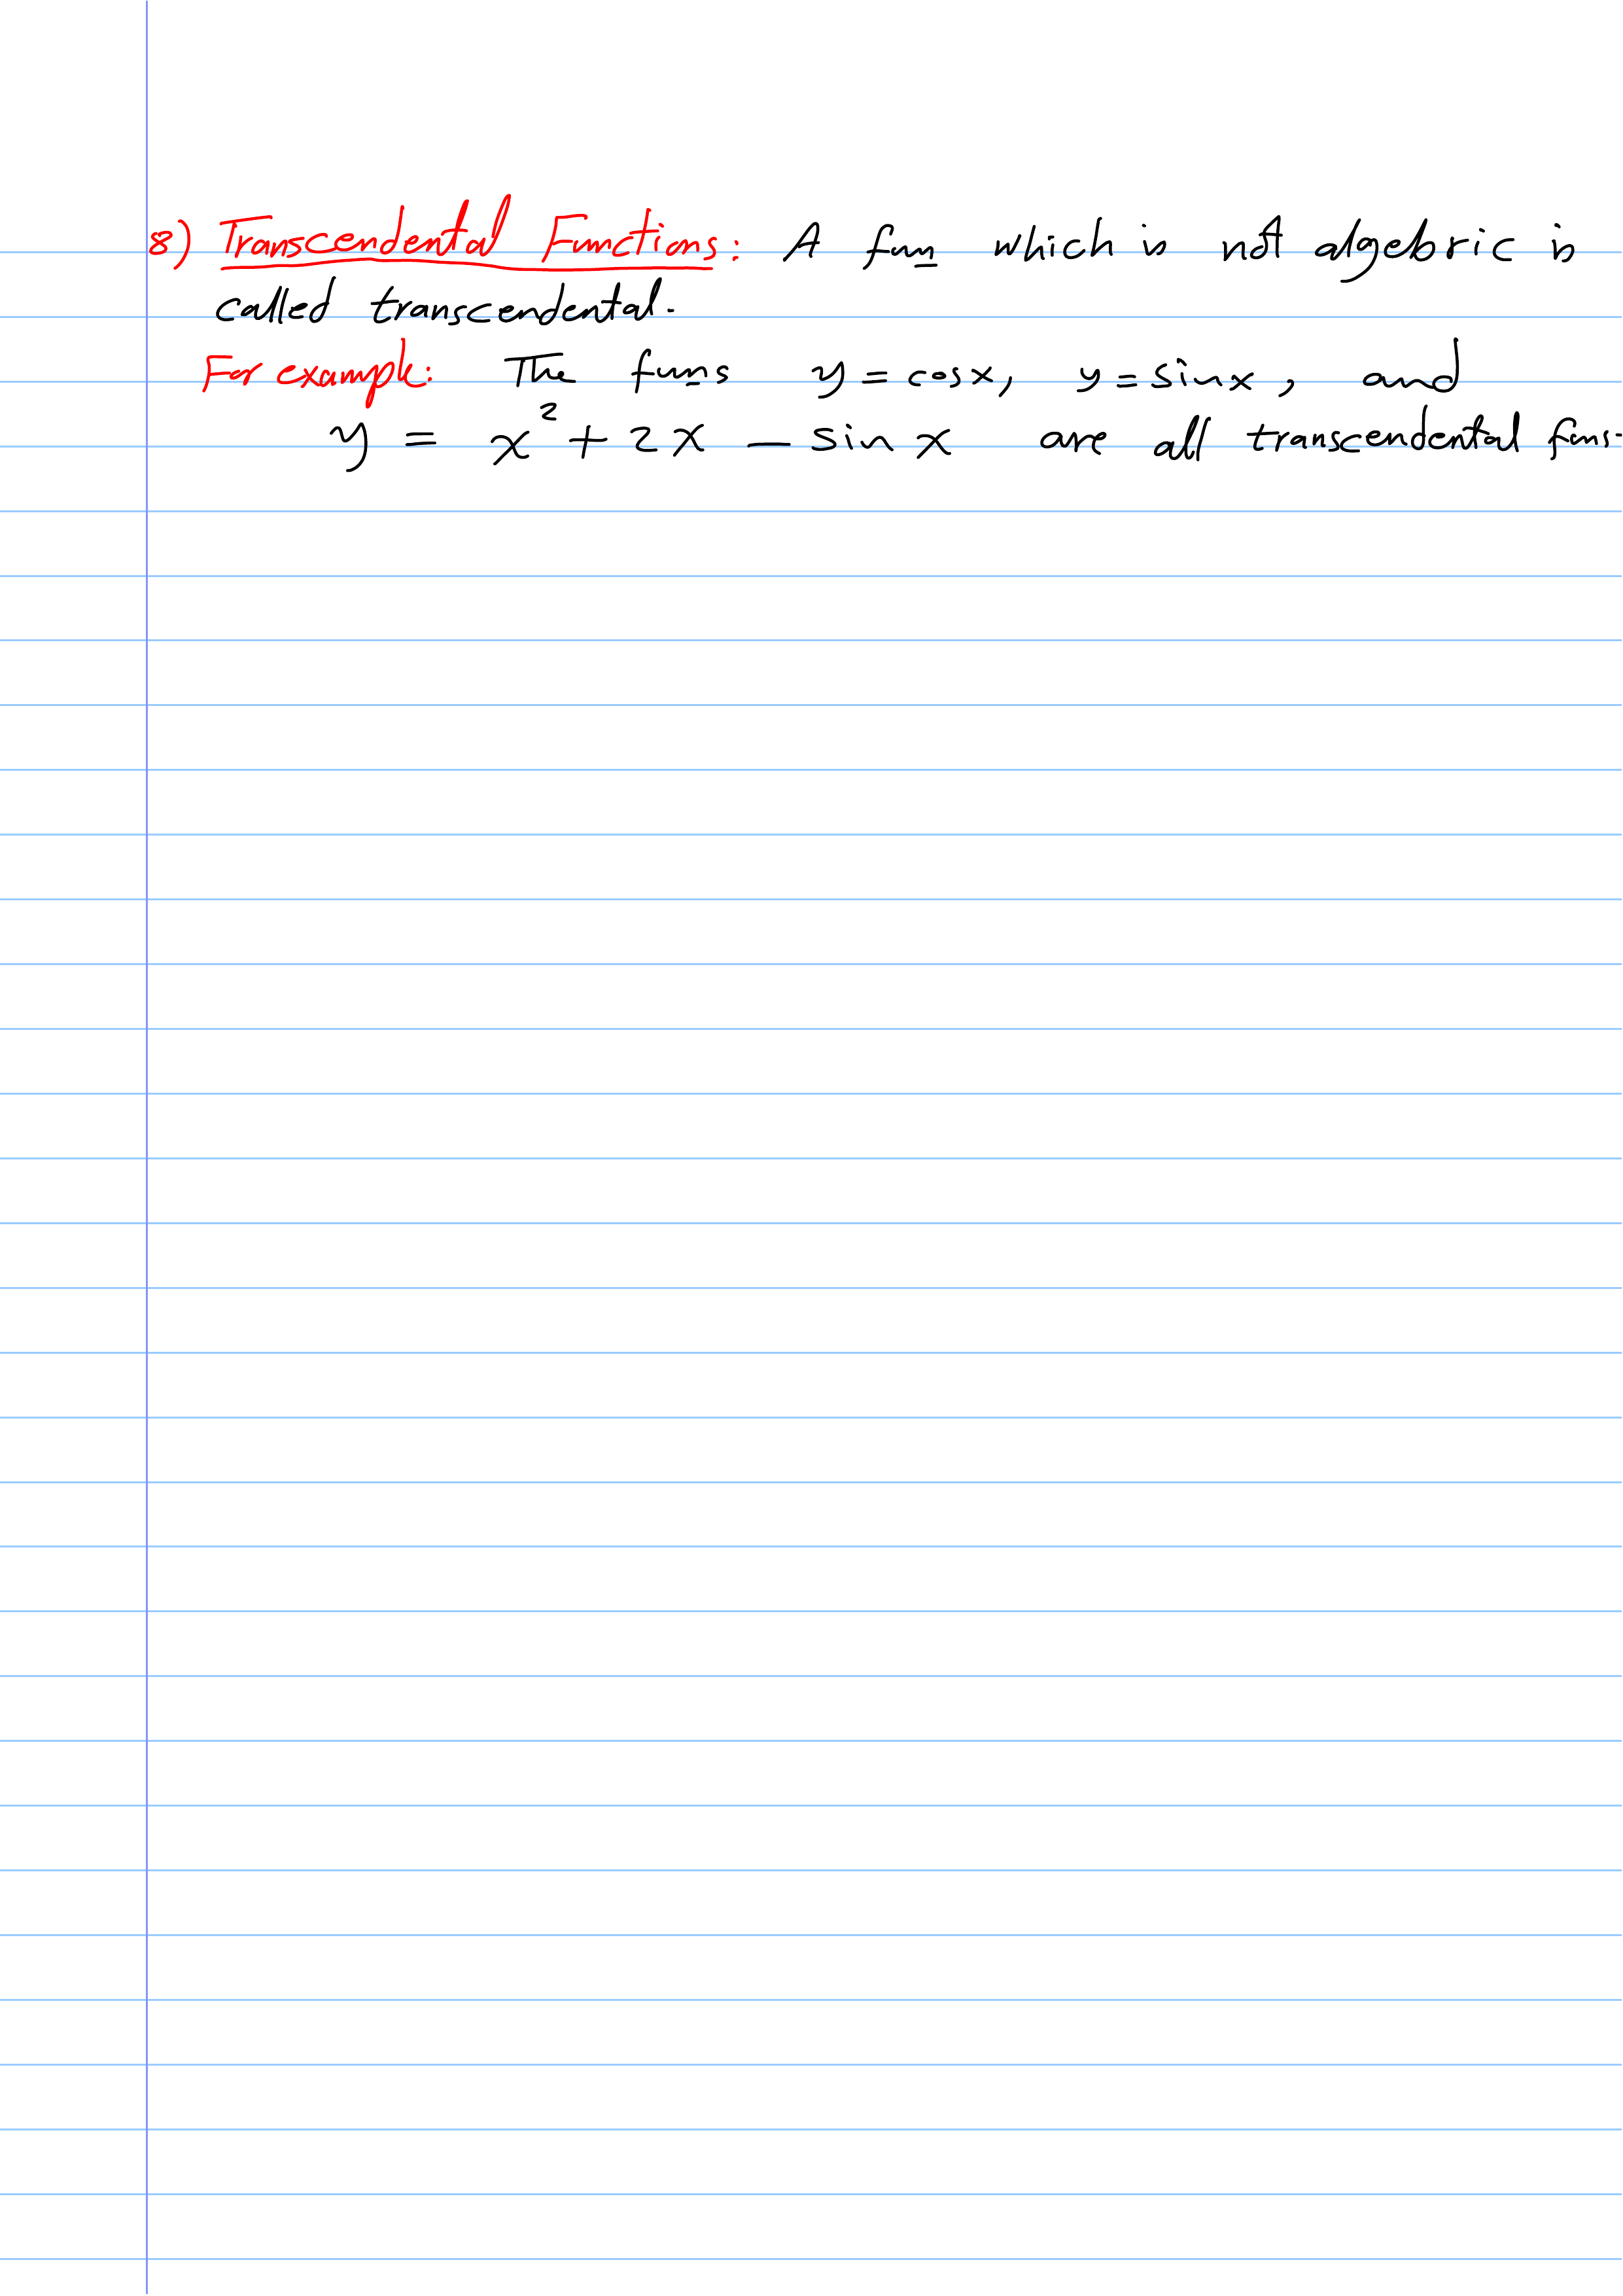 8) Transcendental Functions: A fun which is not algebric is
called transcendental.
For example: The funs y = cosx, y = sinx, and
y = x² + 2x - sin x are all transcendental funs.